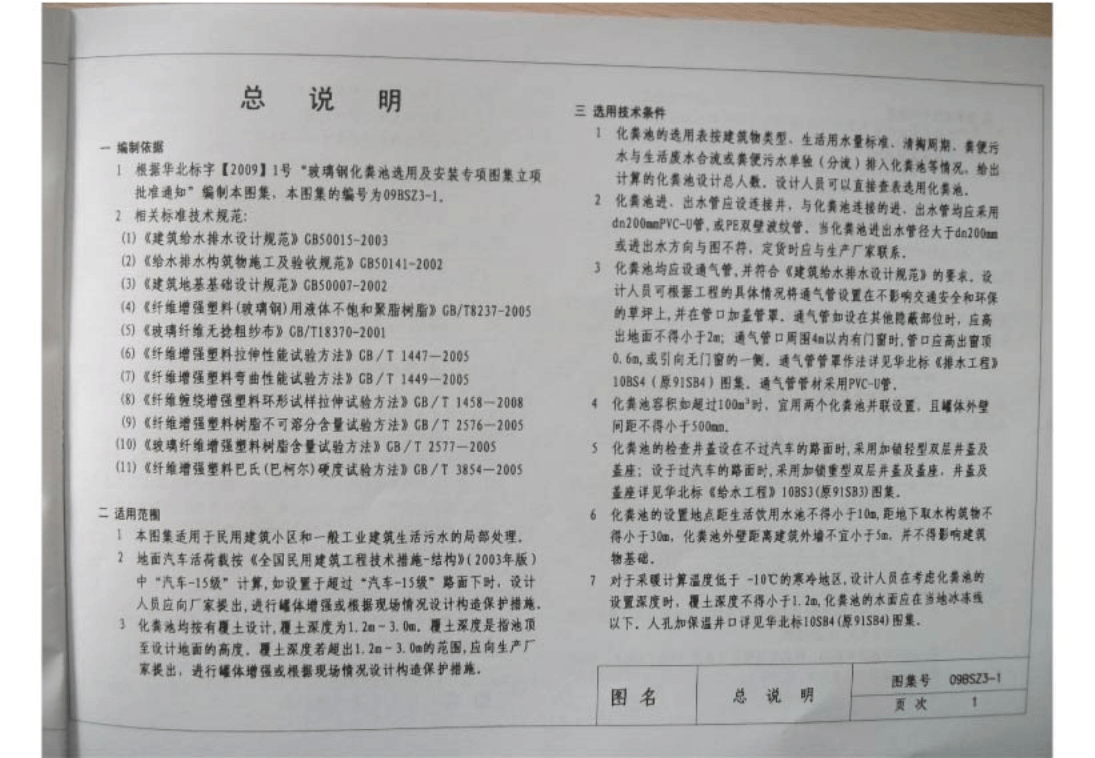 总 说 明
一 编制依据
1 根据华北标字【2009】1号“玻璃钢化粪池选用及安装专项图集立项
批准通知”编制本图集，本图集的编号为09BSZ3-1。
2 相关标准技术规范：
(1)《建筑给水排水设计规范》GB50015-2003
(2)《给水排水构筑物施工及验收规范》GB50141-2002
(3)《建筑地基基础设计规范》GB50007-2002
(4)《纤维增强塑料(玻璃钢)用液体不饱和聚脂树脂》GB/T8237-2005
(5)《玻璃纤维无捻粗纱布》GB/T18370-2001
(6)《纤维增强塑料拉伸性能试验方法》GB/T 1447—2005
(7)《纤维增强塑料弯曲性能试验方法》GB/T 1449—2005
(8)《纤维缠绕增强塑料环形试样拉伸试验方法》GB/T 1458—2008
(9)《纤维增强塑料树脂不可溶分含量试验方法》GB/T 2576—2005
(10)《玻璃纤维增强塑料树脂含量试验方法》GB/T 2577—2005
(11)《纤维增强塑料巴氏(巴柯尔)硬度试验方法》GB/T 3854—2005
二 适用范围
1 本图集适用于民用建筑小区和一般工业建筑生活污水的局部处理。
2 地面汽车活荷载按《全国民用建筑工程技术措施-结构》(2003年版)
中“汽车-15级”计算,如设置于超过“汽车-15级”路面下时，设计
人员应向厂家提出,进行罐体增强或根据现场情况设计构造保护措施。
3 化粪池均按有覆土设计,覆土深度为1.2m-3.0m。覆土深度是指池顶
至设计地面的高度。覆土深度若超出1.2m-3.0m的范围,应向生产厂
家提出，进行罐体增强或根据现场情况设计构造保护措施。
三 选用技术条件
1 化粪池的选用表按建筑物类型、生活用水量标准、清掏周期、粪便污
水与生活废水合流或粪便污水单独（分流）排入化粪池等情况，给出
计算的化粪池设计总人数。设计人员可以直接查表选用化粪池。
2 化粪池进、出水管应设连接井，与化粪池连接的进、出水管均应采用
dn200mmPVC-U管,或PE双壁波纹管。当化粪池进出水管径大于dn200mm
或进出水方向与图不符，定货时应与生产厂家联系。
3 化粪池均应设通气管,并符合《建筑给水排水设计规范》的要求。设
计人员可根据工程的具体情况将通气管设置在不影响交通安全和环保
的草坪上,并在管口加盖管罩。通气管如设在其他隐蔽部位时，应高
出地面不得小于2m；通气管口周围4m以内有门窗时,管口应高出窗顶
0.6m,或引向无门窗的一侧。通气管管罩作法详见华北标《排水工程》
10BS4（原91SB4）图集。通气管管材采用PVC-U管。
4 化粪池容积如超过100m³时，宜用两个化粪池并联设置，且罐体外壁
间距不得小于500mm。
5 化粪池的检查井盖设在不过汽车的路面时,采用加锁轻型双层井盖及
盖座；设于过汽车的路面时,采用加锁重型双层井盖及盖座，井盖及
盖座详见华北标《给水工程》10BS3(原91SB3)图集。
6 化粪池的设置地点距生活饮用水池不得小于10m,距地下取水构筑物不
得小于30m，化粪池外壁距离建筑外墙不宜小于5m，并不得影响建筑
物基础。
7 对于采暖计算温度低于 -10℃的寒冷地区,设计人员在考虑化粪池的
设置深度时，覆土深度不得小于1.2m,化粪池的水面应在当地冰冻线
以下。人孔加保温井口详见华北标10SB4(原91SB4)图集。
图 名
总 说 明
图集号 09BSZ3-1
页 次 1